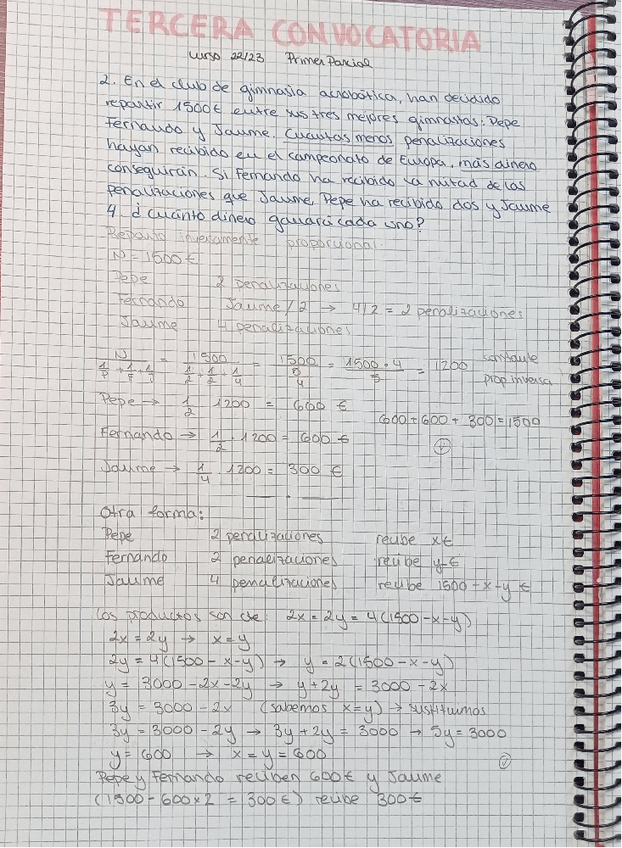 TERCERA CONVOCATORIA
Curso 22/23 Primer Parcial
2. En el club de gimnasia acrobática, han decidido
repartir 1500€ entre sus tres mejores gimnastas: Pepe
Fernando y Jaume. Cuantas menos penalizaciones
hayan recibido en el campeonato de Europa, más dinero
conseguirán. Si Fernando ha recibido la mitad de las
penalizaciones que Jaume, Pepe ha recibido dos y Jaume
4. ¿Cuánto dinero ganará cada uno?
Reparto inversamente proporcional:
N = 1500€
Pepe 2 penalizaciones
Fernando Jaume/2 → 4/2 = 2 penalizaciones
Jaume 4 penalizaciones
N / (1/P + 1/F + 1/J) = 1500 / (1/2 + 1/2 + 1/4) = 1500 / (5/4) = 1500·4 / 5 = 1200 constante
prop. inversa
Pepe → 1/2 · 1200 = 600 €
600 + 600 + 300 = 1500
Fernando → 1/2 · 1200 = 600 €
Jaume → 1/4 · 1200 = 300 €
Otra forma:
Pepe 2 penalizaciones recibe x€
Fernando 2 penalizaciones recibe y€
Jaume 4 penalizaciones recibe 1500 - x - y €
Los productos son de: 2x = 2y = 4(1500 - x - y)
2x = 2y → x = y
2y = 4(1500 - x - y) → y = 2(1500 - x - y)
y = 3000 - 2x - 2y → y + 2y = 3000 - 2x
3y = 3000 - 2x (sabemos x = y) → sustituimos
3y = 3000 - 2y → 3y + 2y = 3000 → 5y = 3000
y = 600 → x = y = 600
Pepe y Fernando reciben 600€ y Jaume
(1500 - 600 × 2 = 300€) recibe 300€